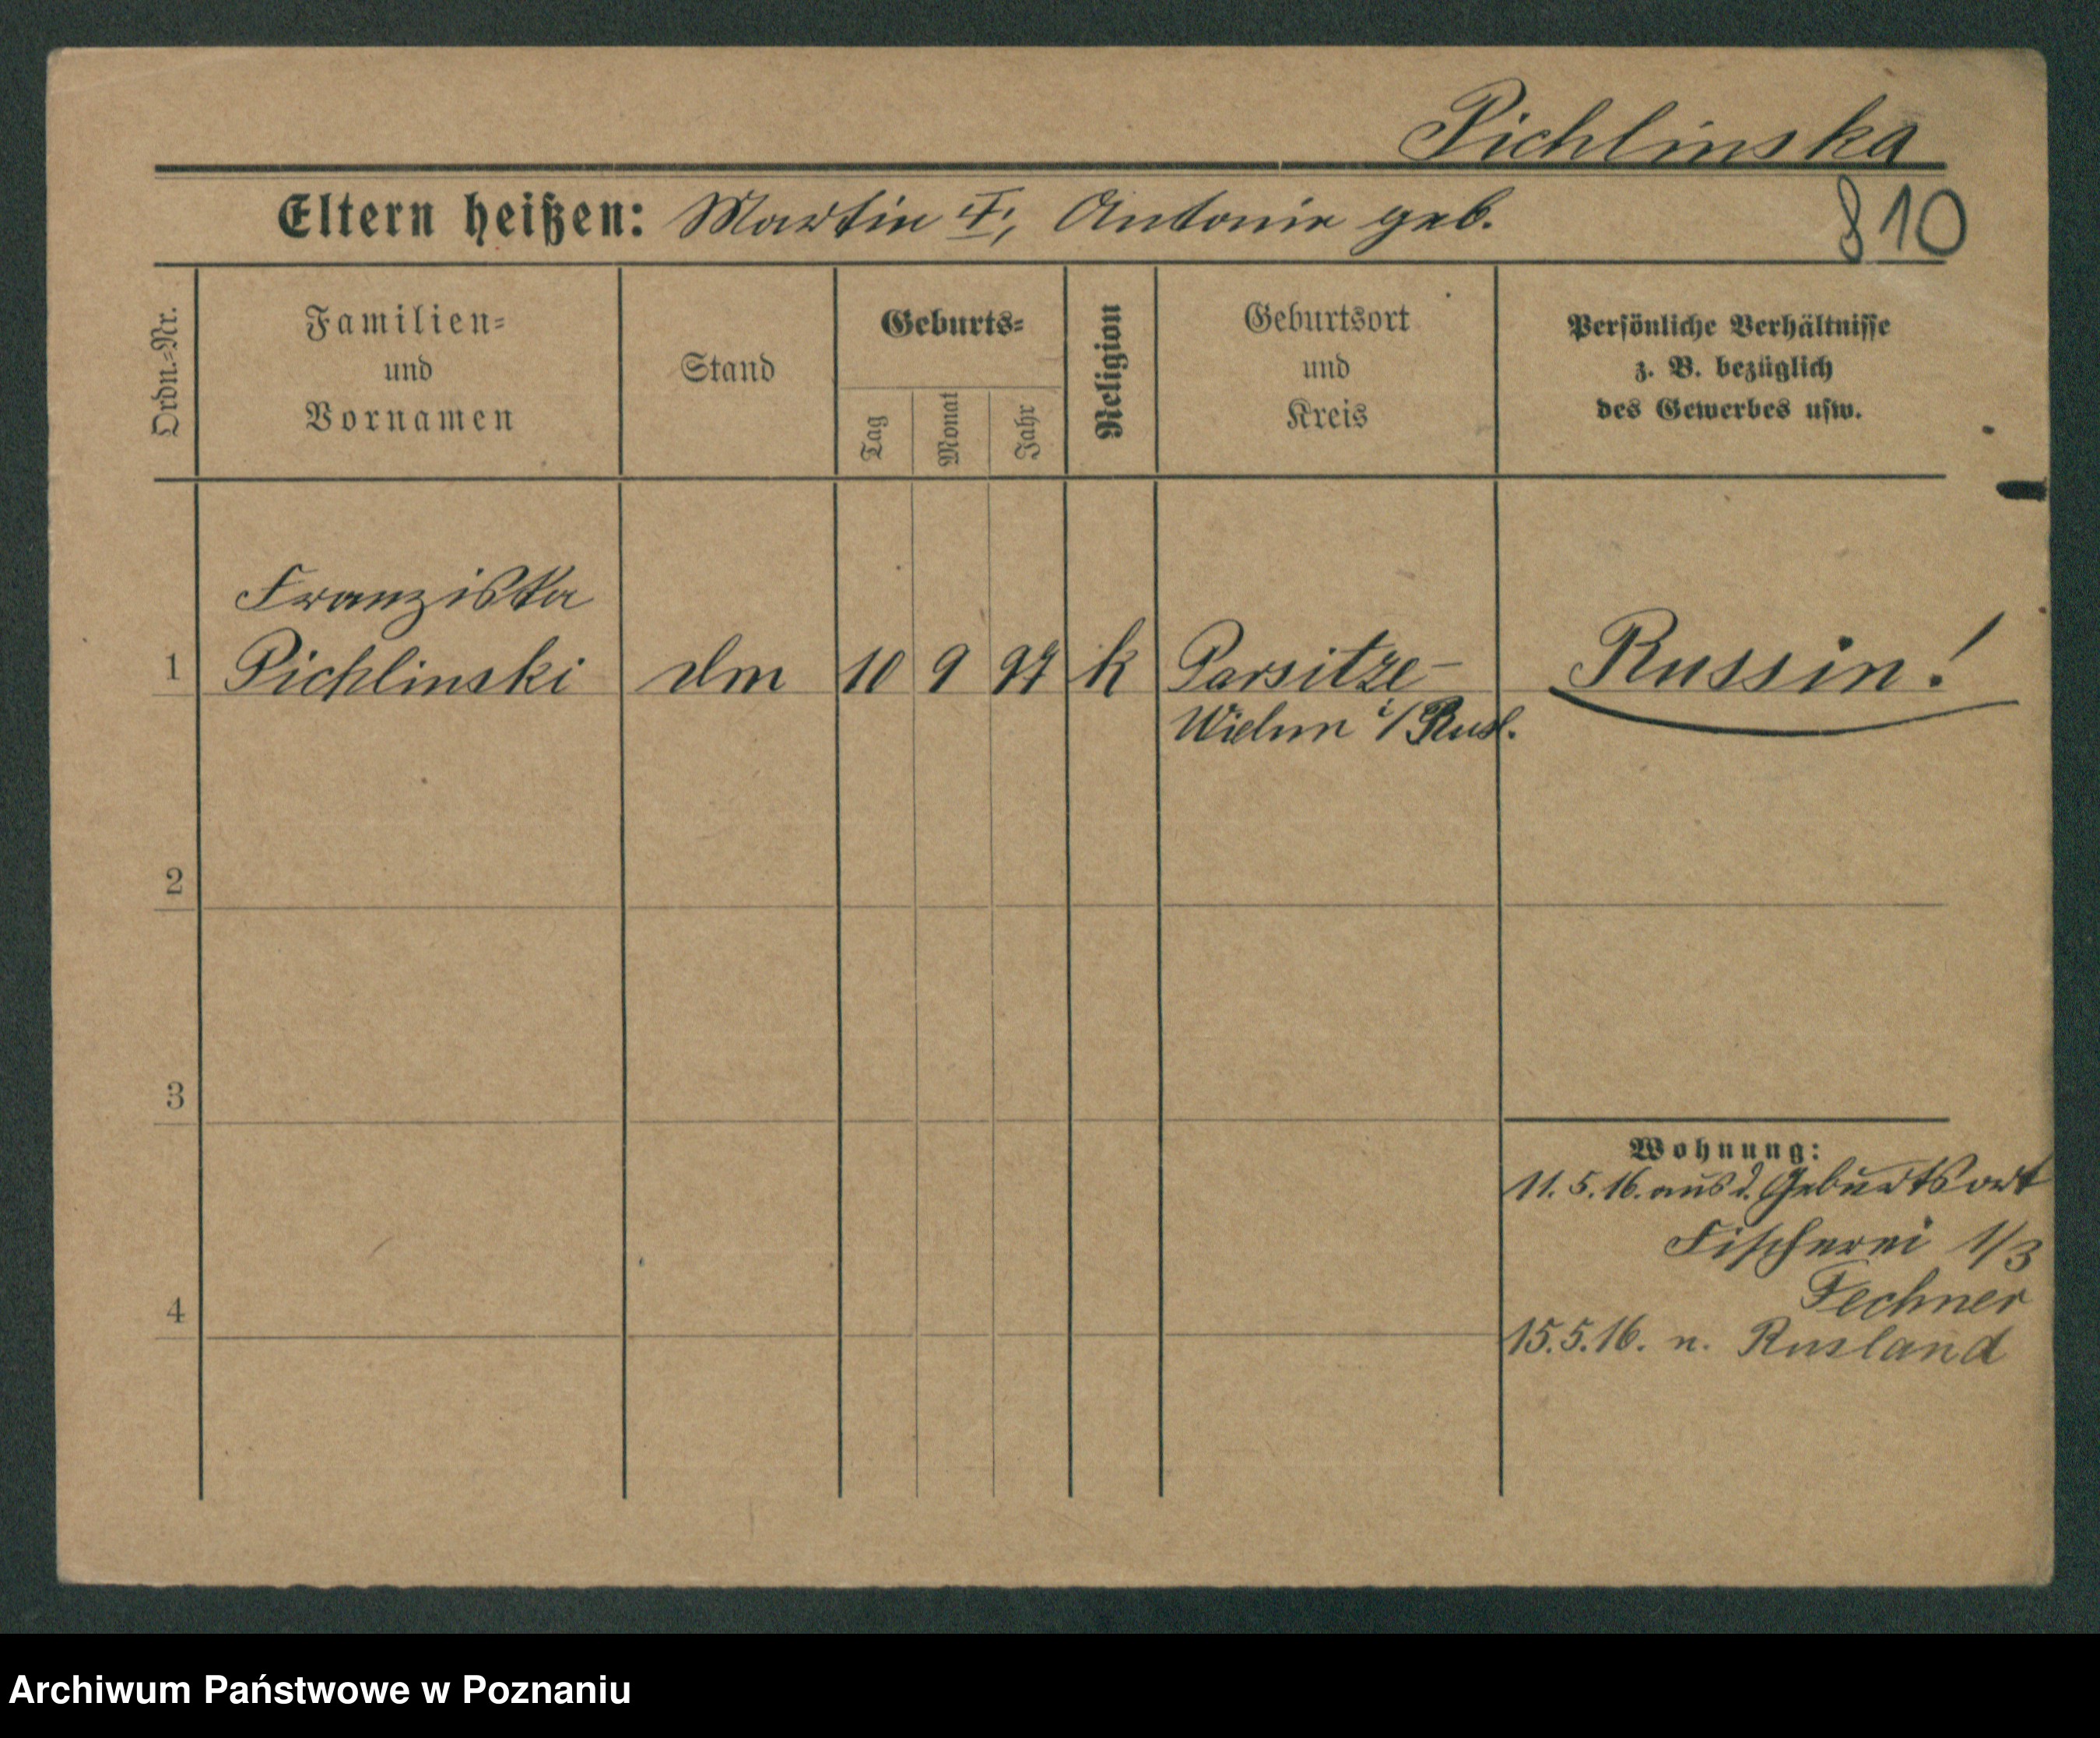 Pichlinska
Eltern heißen: Martin †, Antonie geb.
810
Ordn.=Nr.
Familien=
und
Vornamen
Stand
Geburts=
Tag
Monat
Jahr
Religion
Geburtsort
und
Kreis
Persönliche Verhältnisse
z. B. bezüglich
des Gewerbes usw.
Franziska
1 Pichlinski dm 10 9 97 k Parsitze- Russin!
i/Rusl.
2
3
4
Wohnung:
11.5.16. aus d. Geburtsort
Fischerei 1/3
Fechner
15.5.16. n. Rusland
Archiwum Państwowe w Poznaniu